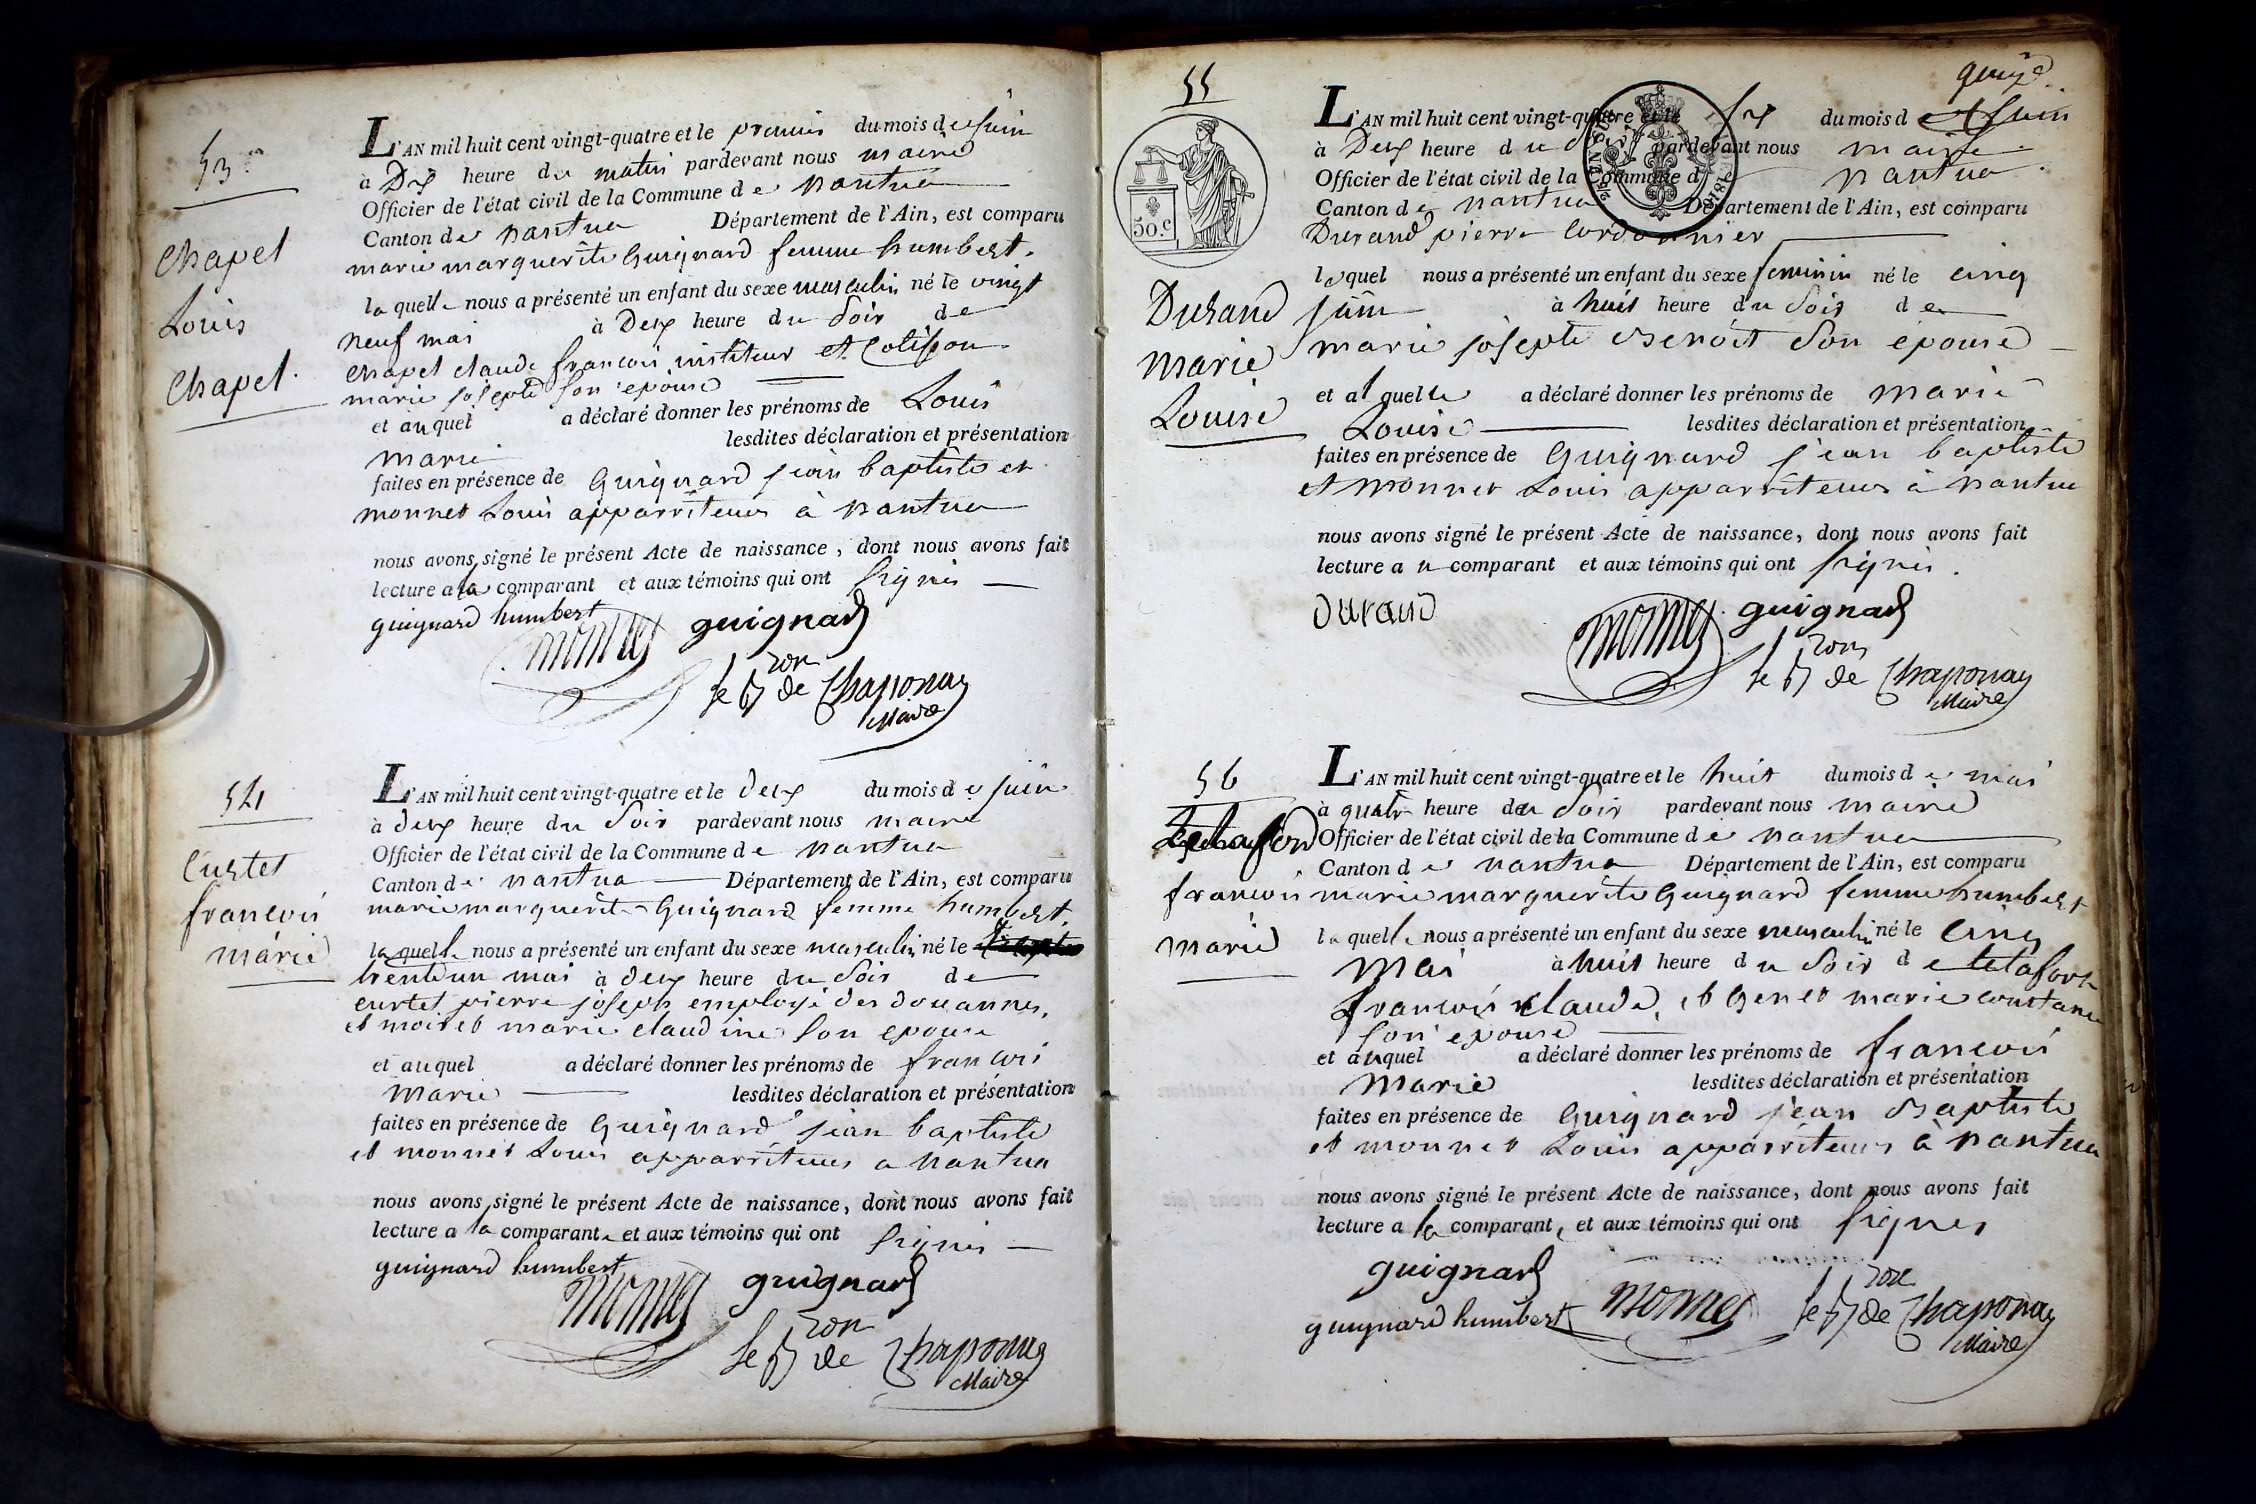 53.
Chapel
Louis
Chapel.
L'AN mil huit cent vingt-quatre et le premier du mois de Juin
à Dix heure du matin pardevant nous maire
Officier de l'état civil de la Commune de nantua
Canton de nantua Département de l'Ain, est comparu
marie marguerite Guignard femme humbert.
laquelle nous a présenté un enfant du sexe masculin né le vingt
neuf mai à Deux heure du Soir de
Chapel claude françois instituteur et
marie josephte son épouse
et auquel a déclaré donner les prénoms de Louis
marie lesdites déclaration et présentation
faites en présence de Guignard jean baptiste et
monnet Louis apparriteurs à nantua
nous avons signé le présent Acte de naissance, dont nous avons fait
lecture a la comparant et aux témoins qui ont signés
guignard humbert
monnet guignard
le Bon de Chaponay
Maire
54
Curtet
françois
marie
L'AN mil huit cent vingt-quatre et le deux du mois de juin
à deux heure du Soir pardevant nous maire
Officier de l'état civil de la Commune de nantua
Canton de nantua Département de l'Ain, est comparu
marie marguerite Guignard femme humbert.
laquelle nous a présenté un enfant du sexe masculin né le
trente un mai à deux heure du Soir de
curtet pierre joseph employé des douannes,
et moiret marie claudine son epouse
et auquel a déclaré donner les prénoms de françois
Marie lesdites déclaration et présentation
faites en présence de Guignard jean baptiste
et monnet Louis apparriteurs a nantua
nous avons signé le présent Acte de naissance, dont nous avons fait
lecture a la comparante et aux témoins qui ont signés
guignard humbert
monnet guignard
le Bon de Chaponay
Maire
55
50.c
Durand
marie
Louise
L'AN mil huit cent vingt-quatre et le six du mois de Juin
à Deux heure du Soir pardevant nous maire
Officier de l'état civil de la Commune d nantua
Canton de nantua Département de l'Ain, est comparu
Durand pierre Cordonnier
lequel nous a présenté un enfant du sexe feminin né le cinq
juin à huit heure du Soir de
marie josephte Benoit Son épouse
et a l quelle a déclaré donner les prénoms de marie
Louise lesdites déclaration et présentation
faites en présence de Guignard jean baptiste
et monnet Louis apparriteurs à nantua
nous avons signé le présent Acte de naissance, dont nous avons fait
lecture a u comparant et aux témoins qui ont signés.
Durand
monnet guignard
le Bon de Chaponay
Maire
56
françois
marie
L'AN mil huit cent vingt-quatre et le huit du mois de mai
à quatre heure du Soir pardevant nous maire
Officier de l'état civil de la Commune de nantua
Canton de nantua Département de l'Ain, est comparu
marie marguerite Guignard femme humbert
laquelle nous a présenté un enfant du sexe masculin né le cinq
Mai à huit heure du Soir de
françois claude, et Genet marie constance
son epouse
et auquel a déclaré donner les prénoms de françois
Marie lesdites déclaration et présentation
faites en présence de Guignard jean Baptiste
et monnet Louis apparriteurs à nantua
nous avons signé le présent Acte de naissance, dont nous avons fait
lecture a la comparant, et aux témoins qui ont signés
guignard
guignard humbert monnet le Bon de Chaponay
Maire